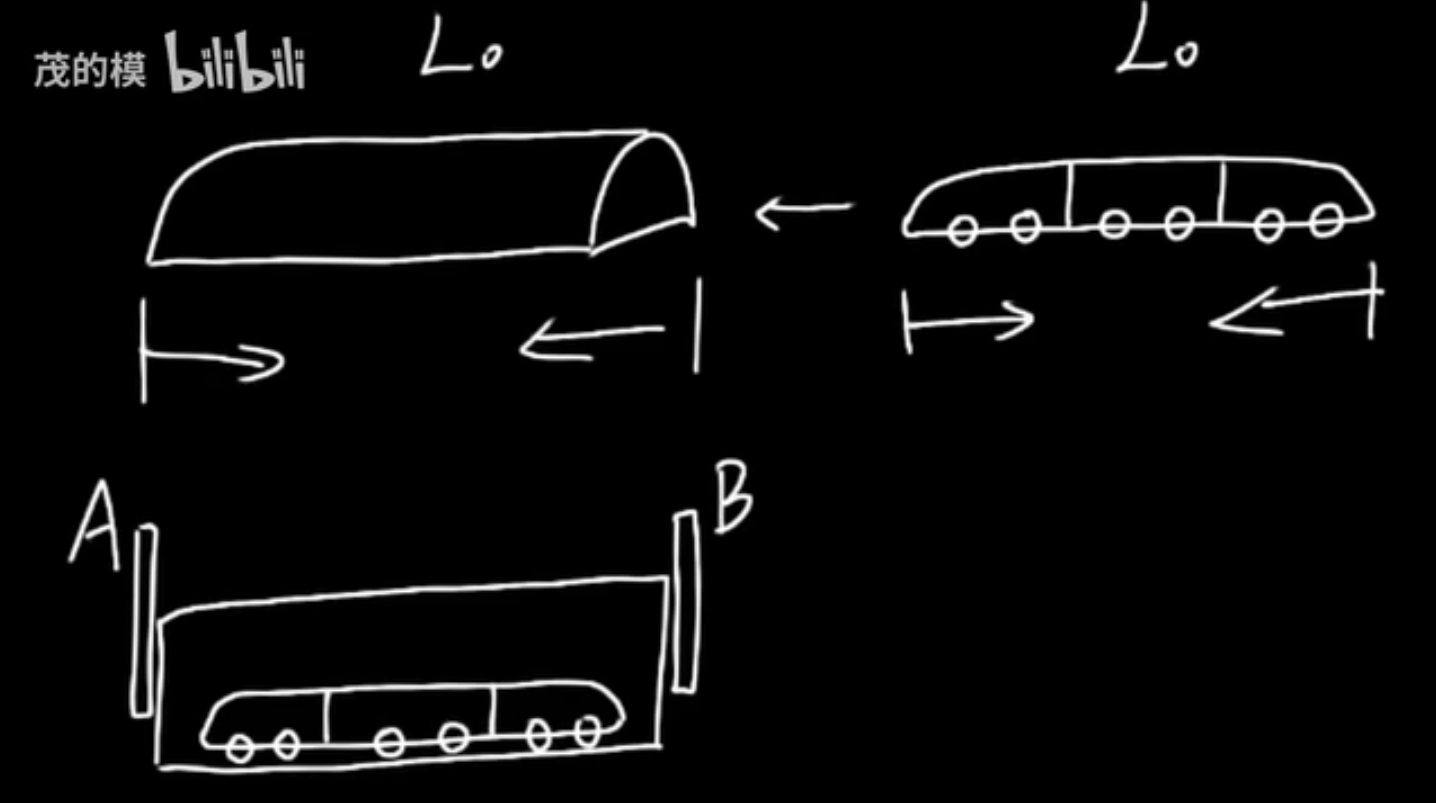 茂的模 bilibili
L₀ L₀
A B